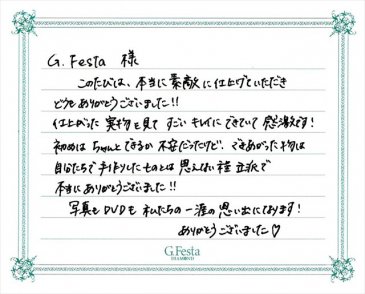 G.Festa 様
このたびは、本当に素敵に仕上げていただき
どうもありがとうございました!!
仕上がった実物を見て すごいキレイにできていて感激です!
初めは ちゃんとできるか不安だったけど、できあがった物は
自分たちで手作りしたものとは 思えない程 立派で
本当にありがとうございました!!
写真もDVDも 私たちの一涯の思い出になります!
ありがとうございました♡
G.Festa
DIAMOND